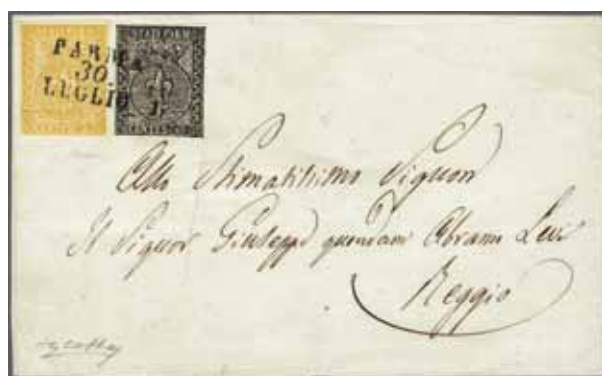 PARMA
30
LUGLIO
Allo Stimatissimo Signore
Il Signor Giuseppe quondam Abram Levi
Reggio